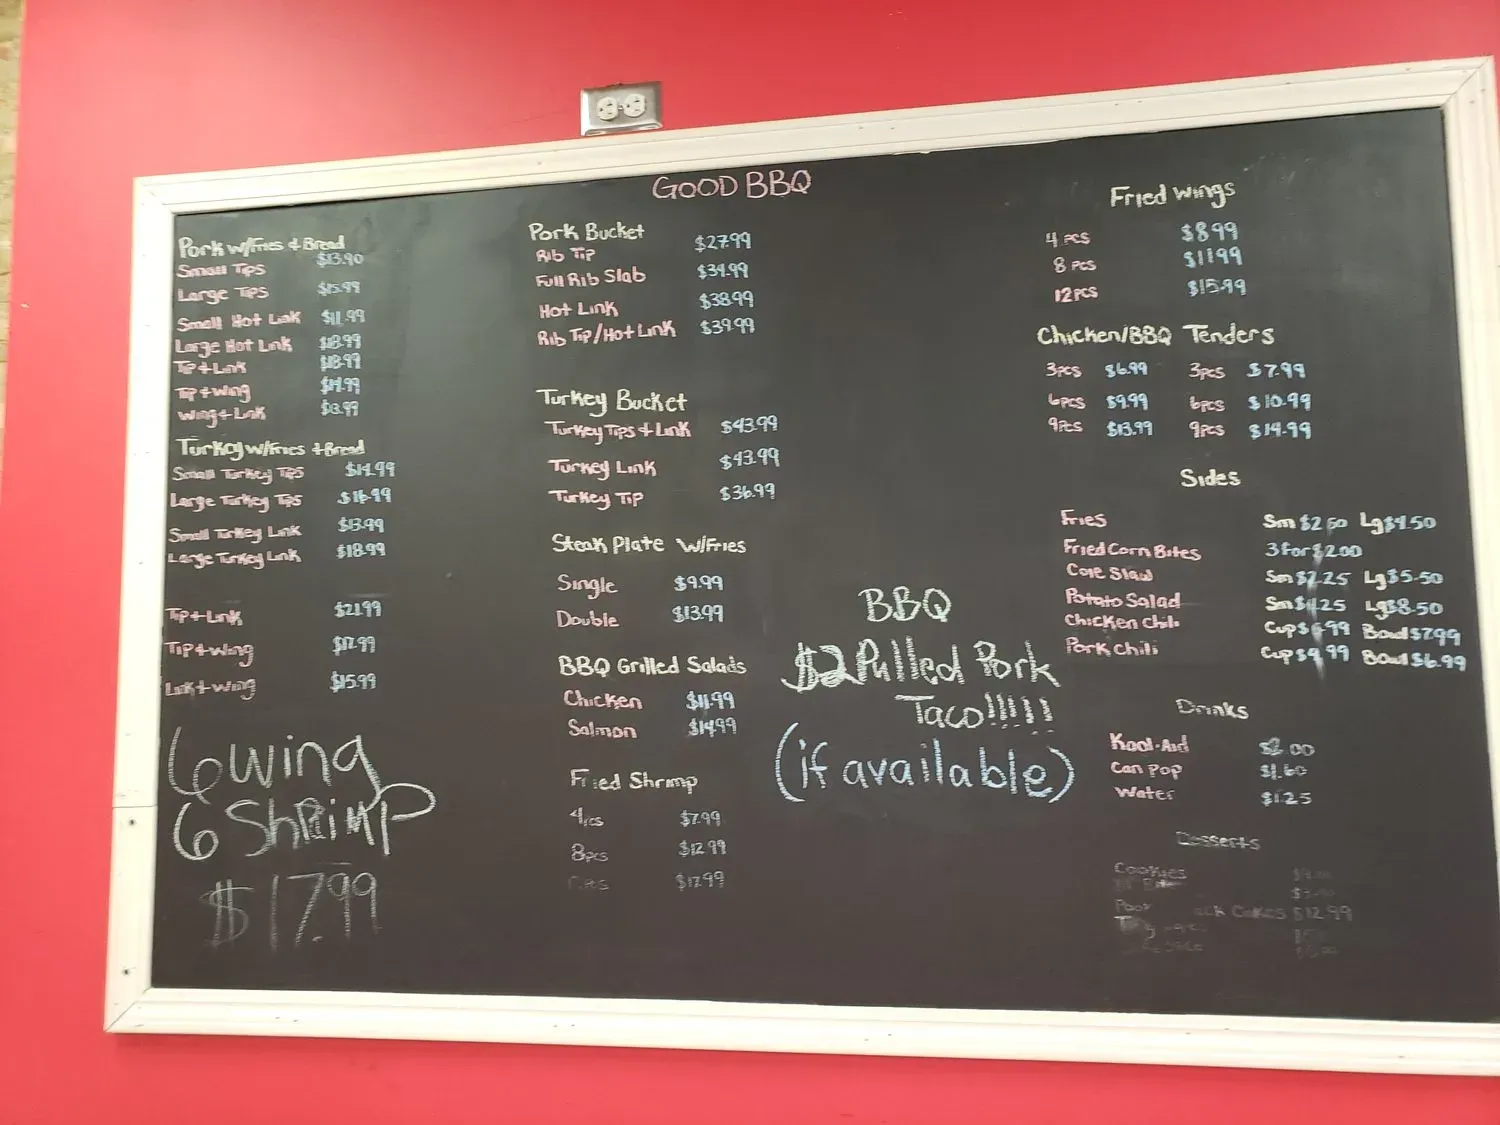 GOOD BBQ
Pork w/Fries & Bread
Small Tips $13.90
Large Tips $15.99
Small Hot Link $11.99
Large Hot Link $18.99
Tip + Link $18.99
Tip + Wing $14.99
Wing + Link $13.99
Turkey w/Fries + Bread
Small Turkey Tips $14.99
Large Turkey Tips $16.99
Small Turkey Link $13.99
Large Turkey Link $18.99
Tip + Link $21.99
Tip + Wing $17.99
Link + Wing $15.99
6 Wing
6 Shrimp
$17.99
Pork Bucket
Rib Tip $27.99
Full Rib Slab $34.99
Hot Link $38.99
Rib Tip/Hot Link $39.99
Turkey Bucket
Turkey Tips + Link $43.99
Turkey Link $43.99
Turkey Tip $36.99
Steak Plate w/Fries
Single $9.99
Double $13.99
BBQ Grilled Salads
Chicken $11.99
Salmon $14.99
Fried Shrimp
4pcs $7.99
8pcs $12.99
$17.99
BBQ
$2 Pulled Pork
Taco!!!!!
(if available)
Fried Wings
4 pcs $8.99
8 pcs $11.99
12pcs $15.99
Chicken/BBQ Tenders
3pcs $6.99 3pcs $7.99
6pcs $9.99 6pcs $10.99
9pcs $13.99 9pcs $14.99
Sides
Fries Sm $2.50 Lg $4.50
Fried Corn Bites 3 for $2.00
Cole Slaw Sm $2.25 Lg $5.50
Potato Salad Sm $4.25 Lg $8.50
Chicken Chili Cup $ Bowl $7.99
Pork Chili Cup $4.99 Bowl $6.99
Drinks
Kool-Aid $2.00
Can Pop $1.60
Water $1.25
Desserts
Cookies
Cakes $12.99